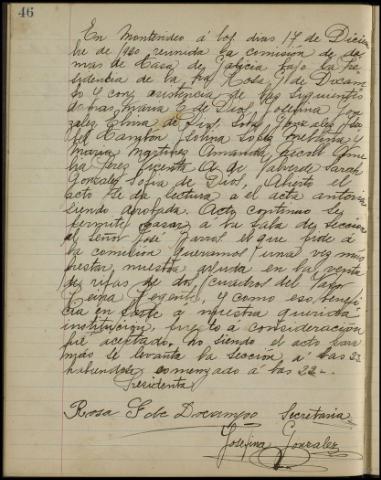 46
En Montevideo á los dias 17 de Diciem
bre de 1920 reunida la comisión de da
mas de Casa de Galicia bajo la Pre
sidencia de la Sra Rosa G de Docam
po y con asistencia de las siguientes
damas, Maria E de Diol, Josefina Gon
zalez, Elvira de
Maria Martinez Amanda
Perez Vicenta A de Valverde Sarah
Gonzalez Sofia de Abierto el
acto se da lectura a el acta anterior
siendo aprobada. Acto continuo se
permite pasar a la sala de seccion
el Señor José el que pide á
la comisión queramos una vez mas
prestar nuestra ayuda en la venta
de rifas de dos cuadros del
y como eso benefi
cia en parte a nuestra querida
institucion, fue lo a consideración
fué aceptado, no siendo el acto para
más se levanta la sección á las 23
habiendose comenzado á las 22 -
Presidenta
Rosa G de Docampo Secretaria
Josefina Gonzalez